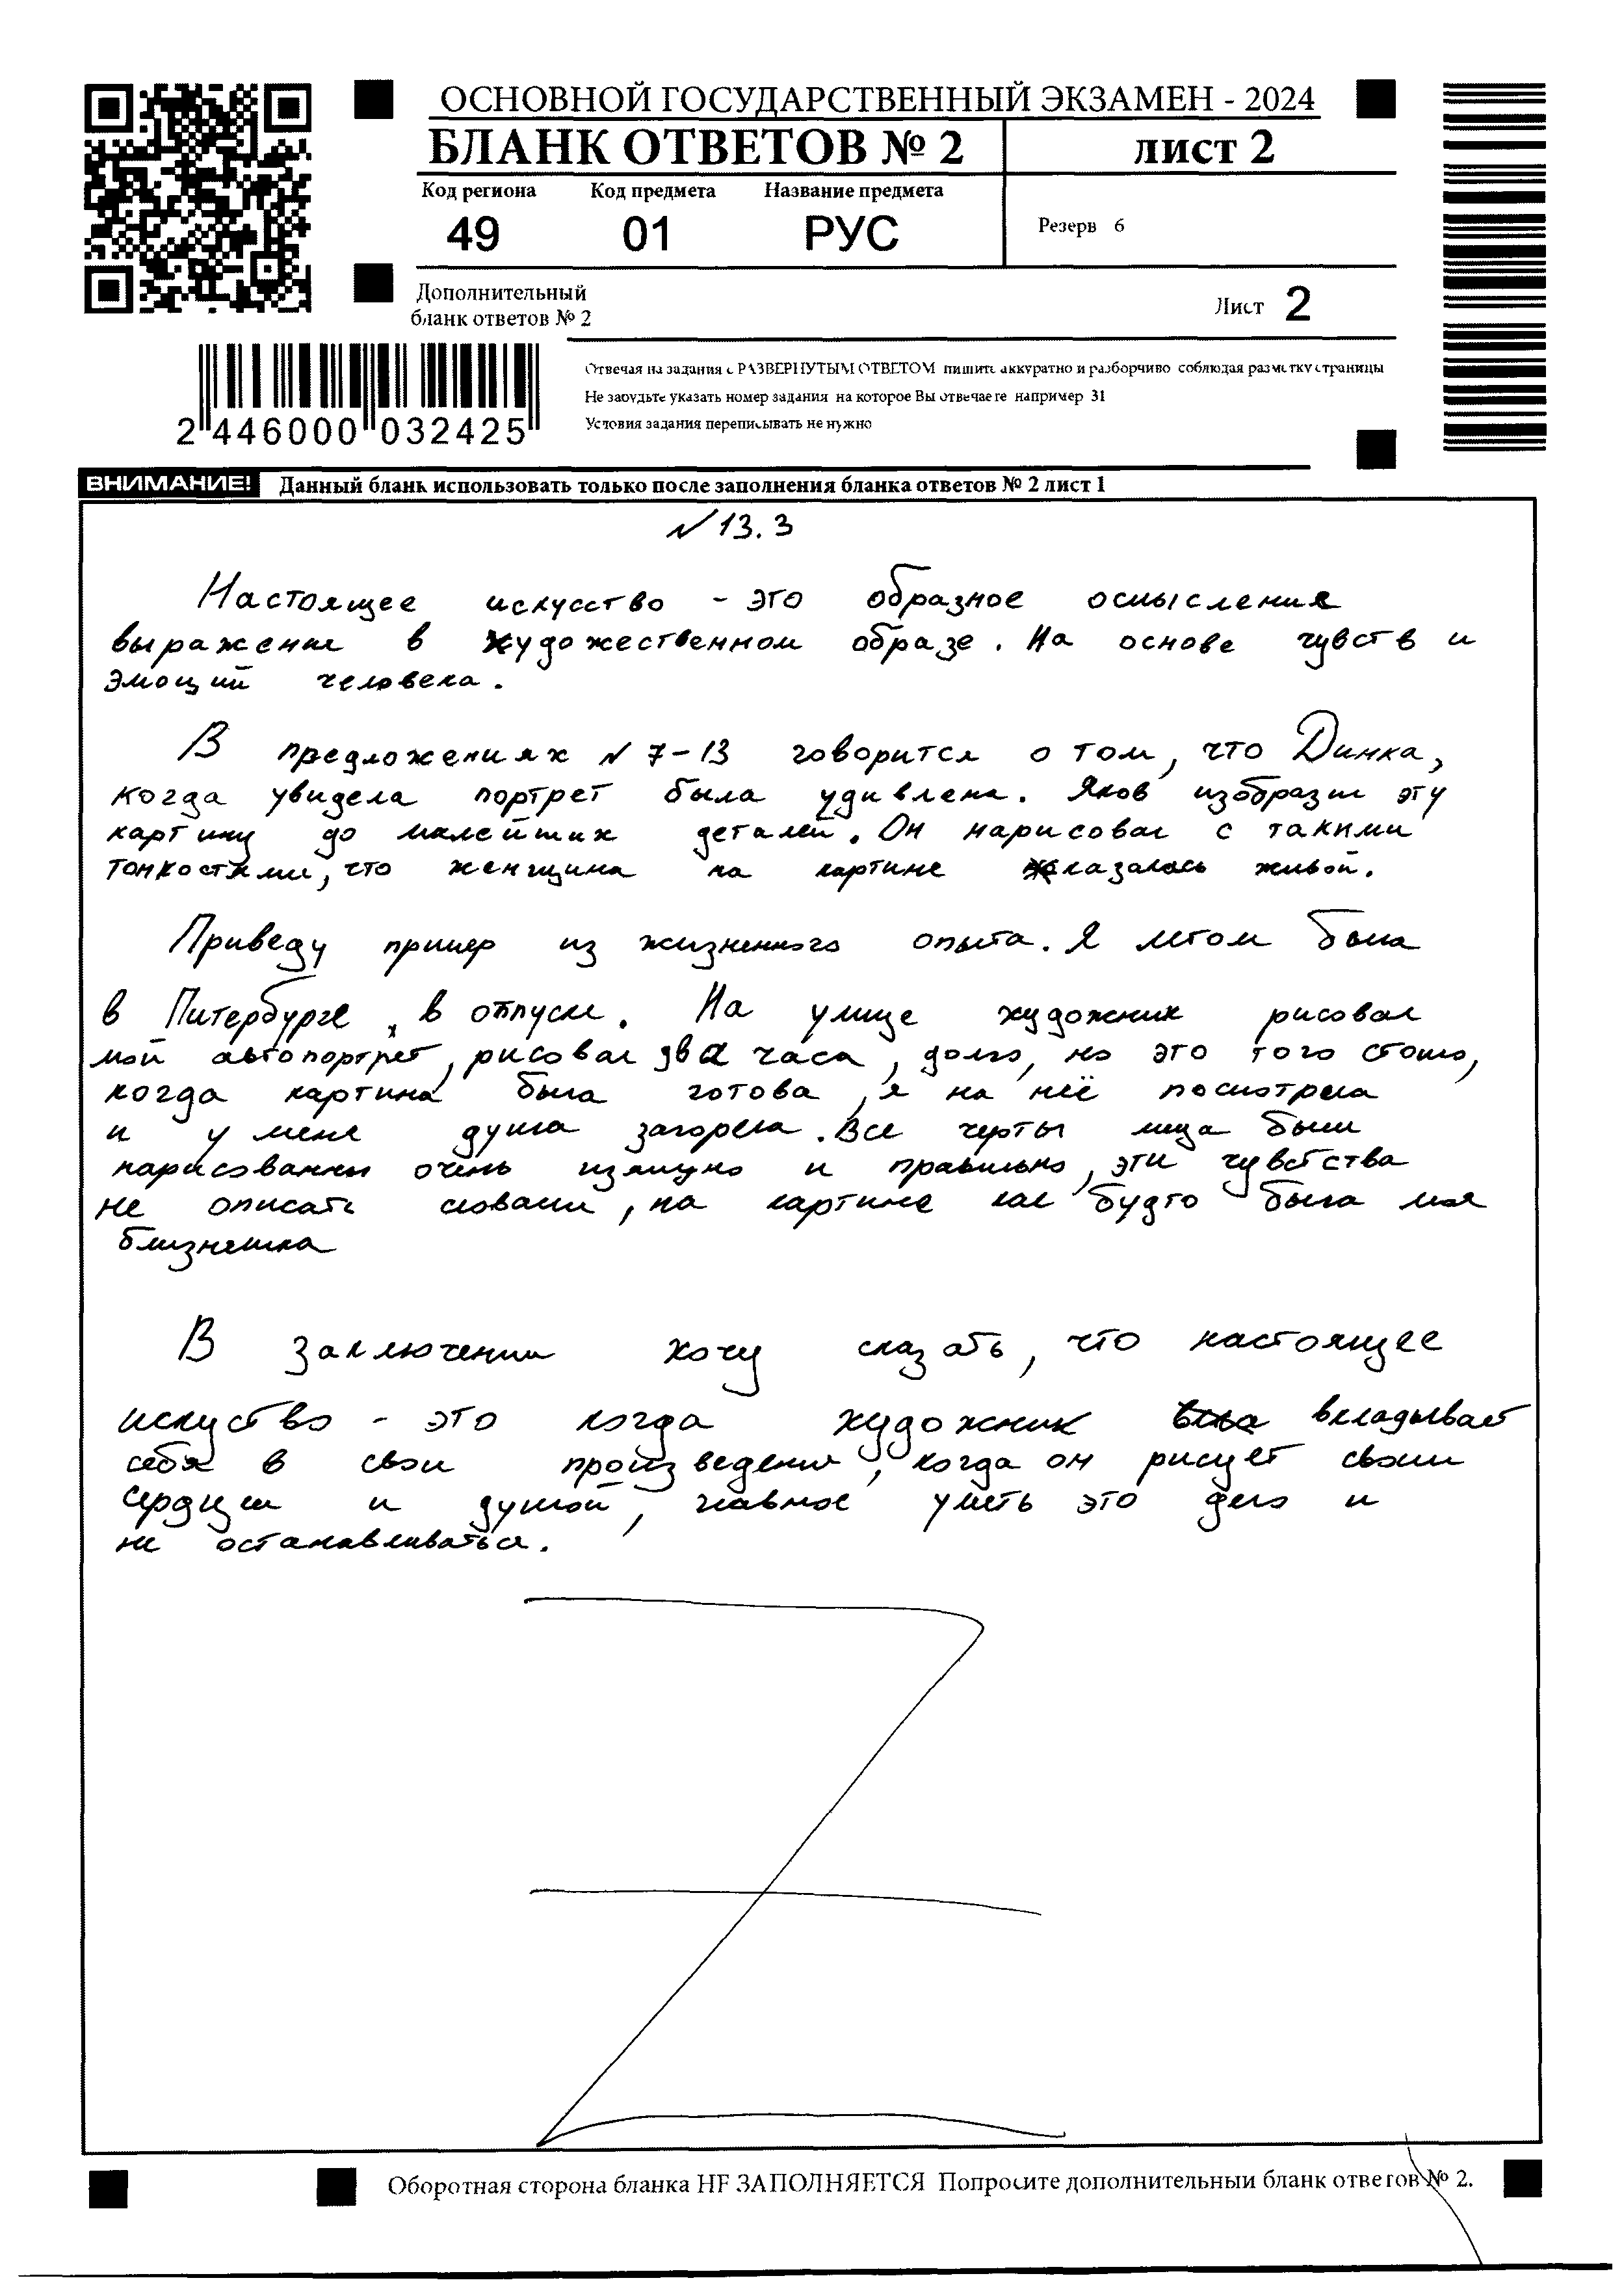 ОСНОВНОЙ ГОСУДАРСТВЕННЫЙ ЭКЗАМЕН - 2024
БЛАНК ОТВЕТОВ № 2
лист 2
Код региона Код предмета Название предмета
49 01 РУС
Резерв 6
Дополнительный
бланк ответов № 2
Лист 2
2 446000 032425
Отвечая на задания с РАЗВЕРНУТЫМ ОТВЕТОМ пишите аккуратно и разборчиво соблюдая разметку страницы
Не забудьте указать номер задания на которое Вы отвечаете например 31
Условия задания переписывать не нужно
ВНИМАНИЕ! Данный бланк использовать только после заполнения бланка ответов № 2 лист 1
№ 13.3
Настоящее искусство - это образное осмысления
выражение в художественном образе. На основе чувств и
эмоций человека.
В предложениях № 7-13 говорится о том, что Динка,
когда увидела портрет была удивлена. Яков изобразил эту
картину до малейших деталей. Он нарисовал с такими
тонкостями, что женщина на картине казалась живой.
Приведу пример из жизненного опыта. Я летом была
в Питербурге, в отпуске. На улице художник рисовал
мой автопортрет, рисовал два часа, долго, но это того стоило,
когда картина была готова, я на неё посмотрела
и у меня душа загорела. Все черты лица были
нарисованны очень изящно и правильно, эти чувства
не описать словами, на картине как будто была моя
близняшка
В заключении хочу сказать, что настоящее
искуство - это когда художник вкладывает
себя в свои произведения, когда он рисует своим
сердцем и душой, главное уметь это дело и
не останавливаться.
Оборотная сторона бланка НЕ ЗАПОЛНЯЕТСЯ Попросите дополнительный бланк ответов № 2.